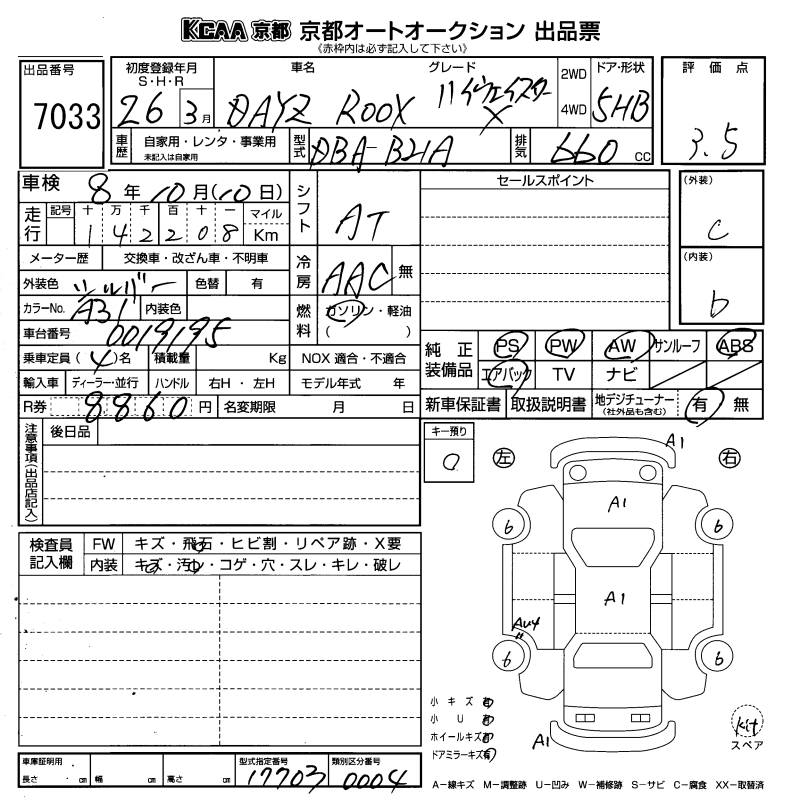 KCAA 京都 京都オートオークション 出品票
《赤枠内は必ず記入して下さい》
出品番号 7033
初度登録年月 S・H・R 26 3月
車名 DAYZ ROOX
グレード ハイウェイスター X
2WD 4WD
ドア・形状 5HB
評価点 3.5
車歴 自家用・レンタ・事業用 未記入は自家用
型式 DBA-B21A
排気 660 CC
車検 8年10月(10日)
シフト AT
セールスポイント
(外装) C
(内装) b
走行 記号 十 万 千 百 十 一 マイル Km
1 4 2 2 0 8
メーター歴 交換車・改ざん車・不明車
冷房 AAC 無
外装色 シルバー 色替 有
カラーNo. A31 内装色
燃料 ガソリン・軽油 ( )
車台番号 0019195
乗車定員 (4)名 積載量 Kg NOX 適合・不適合
輸入車 ディーラー・並行 ハンドル 右H・左H モデル年式 年
R券 8860 円 名変期限 月 日
純正装備品 PS PW AW サンルーフ ABS
エアバック TV ナビ
新車保証書 取扱説明書 地デジチューナー (社外品も含む) 有 無
注意事項(出品店記入) 後日品
キー預り 0
左 右
A1
A1
6 6
A1
AU4
6 6
A1
検査員記入欄 FW キズ・飛石・ヒビ割・リペア跡・X要
内装 キズ・汚レ・コゲ・穴・スレ・キレ・破レ
小キズ 有
小U 有
ホイールキズ 有
ドアミラーキズ 有
kit
スペア
車庫証明用 長さ cm 幅 cm 高さ cm
型式指定番号 17703
類別区分番号 0004
A-線キズ M-調整跡 U-凹み W-補修跡 S-サビ C-腐食 XX-取替済